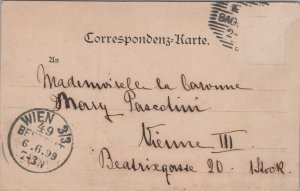 Correspondenz-Karte.
An
Mademoiselle la Baronne
Mary Pascotini
Vienne III
Beatrixgasse 20. I Stock
WIEN 3/3
49
6.6.99
BAG